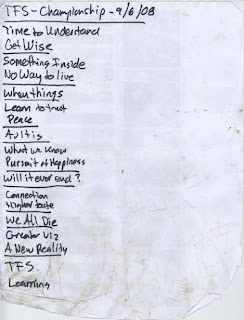 TFS - Championship - 9/6/08
Time to Understand
Get Wise
Something Inside
No Way to live
When things
Learn to trust
Peace
As it is
What we know
Pursuit of Happiness
Will it ever end?
Connection
Higher taste
We All Die
Greater Viz
A New Reality
TFS
Learning